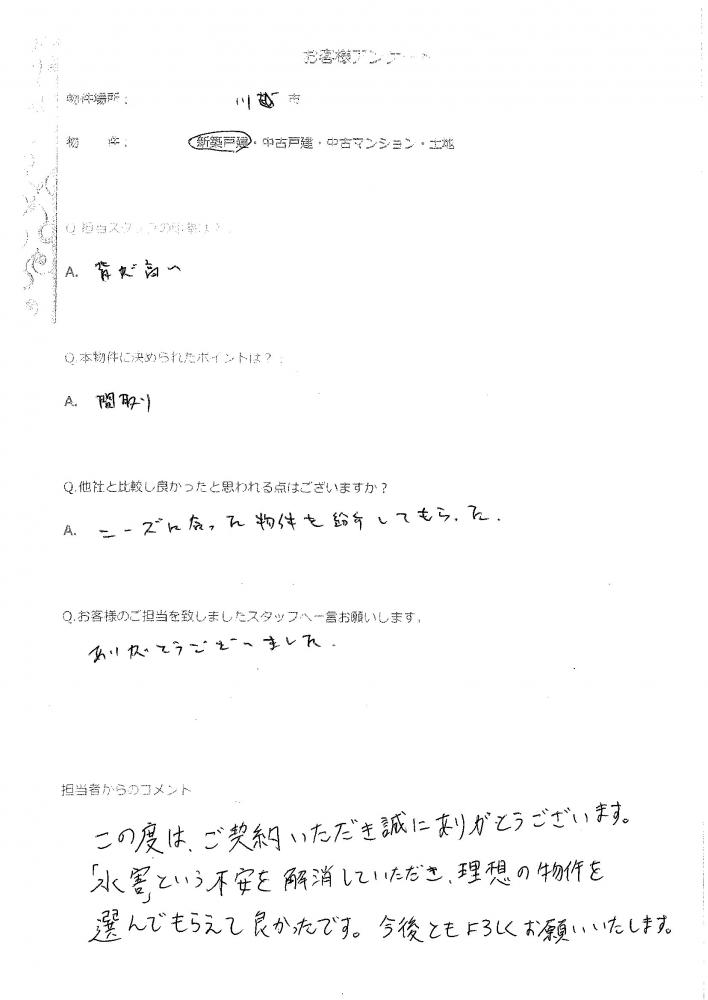 お客様アンケート
物件場所： 川越 市
物　件： 新築戸建・中古戸建・中古マンション・土地
Q.担当スタッフの印象は？
A. 背が高い
Q.本物件に決められたポイントは？：
A. 間取り
Q.他社と比較し良かったと思われる点はございますか？
A. ニーズに合った物件を紹介してもらった.
Q.お客様のご担当を致しましたスタッフへ一言お願いします。
ありがとうございました.
担当者からのコメント
この度は、ご契約いただき誠にありがとうございます。
「水害」という不安を解消していただき、理想の物件を
選んでもらえて良かったです。今後ともよろしくお願いいたします。